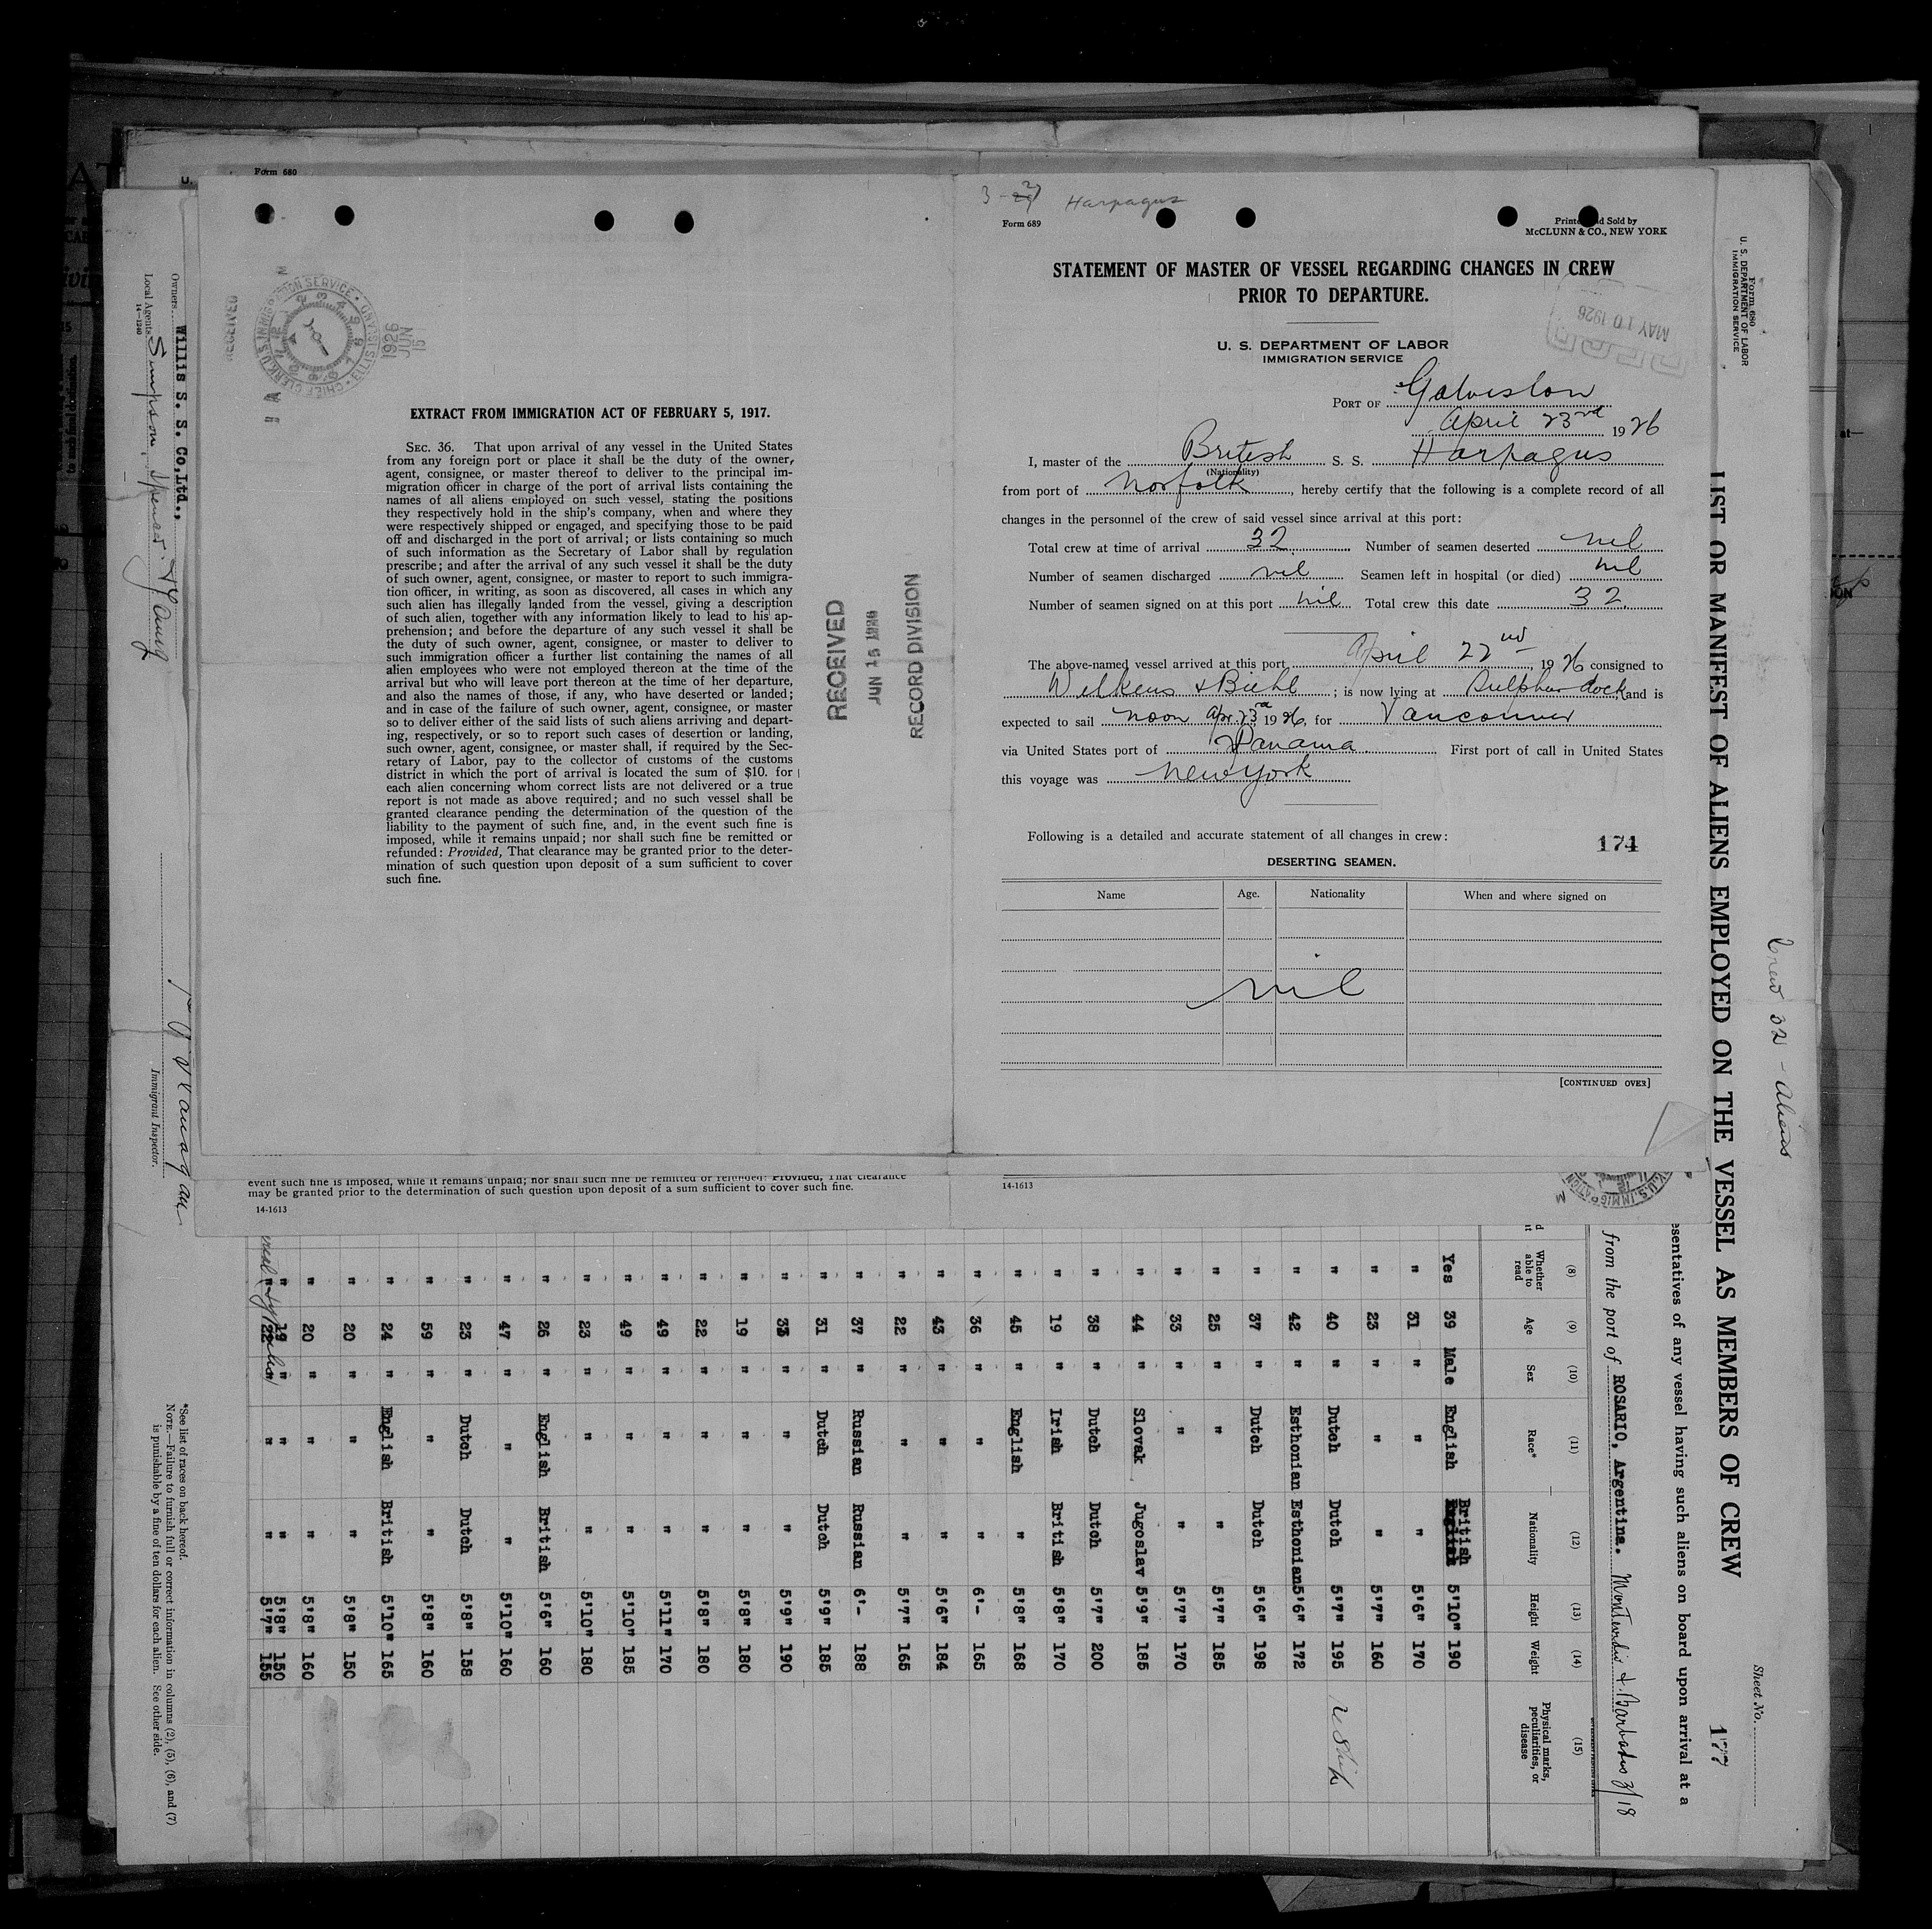 Form 680
U.
EXTRACT FROM IMMIGRATION ACT OF FEBRUARY 5, 1917.
SEC. 36. That upon arrival of any vessel in the United States
from any foreign port or place it shall be the duty of the owner,
agent, consignee, or master thereof to deliver to the principal im-
migration officer in charge of the port of arrival lists containing the
names of all aliens employed on such vessel, stating the positions
they respectively hold in the ship's company, when and where they
were respectively shipped or engaged, and specifying those to be paid
off and discharged in the port of arrival; or lists containing so much
of such information as the Secretary of Labor shall by regulation
prescribe; and after the arrival of any such vessel it shall be the duty
of such owner, agent, consignee, or master to report to such immigra-
tion officer, in writing, as soon as discovered, all cases in which any
such alien has illegally landed from the vessel, giving a description
of such alien, together with any information likely to lead to his ap-
prehension; and before the departure of any such vessel it shall be
the duty of such owner, agent, consignee, or master to deliver to
such immigration officer a further list containing the names of all
alien employees who were not employed thereon at the time of the
arrival but who will leave port thereon at the time of her departure,
and also the names of those, if any, who have deserted or landed;
and in case of the failure of such owner, agent, consignee, or master
so to deliver either of the said lists of such aliens arriving and depart-
ing, respectively, or so to report such cases of desertion or landing,
such owner, agent, consignee, or master shall, if required by the Sec-
retary of Labor, pay to the collector of customs of the customs
district in which the port of arrival is located the sum of $10. for
each alien concerning whom correct lists are not delivered or a true
report is not made as above required; and no such vessel shall be
granted clearance pending the determination of the question of the
liability to the payment of such fine, and, in the event such fine is
imposed, while it remains unpaid; nor shall such fine be remitted or
refunded: Provided, That clearance may be granted prior to the deter-
mination of such question upon deposit of a sum sufficient to cover
such fine.
RECEIVED
JUN 15 1926
RECORD DIVISION
RECEIVED
1926 JUN 15
Harpagus
Form 689
Printed and Sold by
McCLUNN & CO., NEW YORK
STATEMENT OF MASTER OF VESSEL REGARDING CHANGES IN CREW
PRIOR TO DEPARTURE.
MAY 10 1926
U. S. DEPARTMENT OF LABOR
IMMIGRATION SERVICE
PORT OF Galveston
April 23rd 1926
I, master of the British S. S. Harpagus
(Nationality)
from port of Norfolk, hereby certify that the following is a complete record of all
changes in the personnel of the crew of said vessel since arrival at this port:
Total crew at time of arrival 32. Number of seamen deserted nil
Number of seamen discharged nil Seamen left in hospital (or died) nil
Number of seamen signed on at this port nil Total crew this date 32.
The above-named vessel arrived at this port, April 22nd, 1926 consigned to
Wilkens & Biehl; is now lying at Sulphur dock and is
expected to sail noon Apr. 23rd 1926, for Vancouver
via United States port of Panama. First port of call in United States
this voyage was New York
Following is a detailed and accurate statement of all changes in crew:
174
DESERTING SEAMEN.
Name Age. Nationality When and where signed on
nil
[CONTINUED OVER]
event such fine is imposed, while it remains unpaid; nor shall such fine be remitted or refunded: Provided, That clearance
may be granted prior to the determination of such question upon deposit of a sum sufficient to cover such fine.
14-1613
14-1613
Form 680
U. S. DEPARTMENT OF LABOR
IMMIGRATION SERVICE
Sheet No.
Crew 32 - Aliens
LIST OR MANIFEST OF ALIENS EMPLOYED ON THE VESSEL AS MEMBERS OF CREW
177
esentatives of any vessel having such aliens on board upon arrival at a
from the port of ROSARIO, Argentina. Montevideo & Barbados 3/18
(8) (9) (10) (11) (12) (13) (14) (15)
Whether able to read Age Sex Race* Nationality Height Weight Physical marks, peculiarities, or disease
Yes 39 Male English British 5'10" 190
" 31 " " " 5'6" 170
" 23 " " " 5'7" 160
" 40 " Dutch Dutch 5'7" 195
" 42 " Esthonian Esthonian 5'6" 172
" 37 " Dutch Dutch 5'6" 198
" 25 " " " 5'7" 185
" 33 " " " 5'7" 170
" 44 " Slovak Jugoslav 5'9" 185
" 38 " Dutch Dutch 5'7" 200
" 19 " Irish British 5'8" 170
" 45 " English " 5'8" 168
" 36 " " " 6'- 165
" 43 " " " 5'6" 184
" 22 " " " 5'7" 165
" 37 " Russian Russian 6'- 188
" 31 " Dutch Dutch 5'9" 185
" 33 " " " 5'9" 190
" 19 " " " 5'8" 180
" 22 " " " 5'8" 180
" 49 " " " 5'11" 170
" 49 " " " 5'10" 185
" 23 " " " 5'10" 180
" 26 " English British 5'6" 160
" 47 " " " 5'10" 160
" 23 " Dutch Dutch 5'8" 158
" 59 " " " 5'8" 160
" 24 " English British 5'10" 165
" 20 " " " 5'8" 150
" 20 " " " 5'8" 160
" 19 " " " 5'8" 150
" 22 " " " 5'7" 155
*See list of races on back hereof.
NOTE.—Failure to furnish full or correct information in columns (2), (5), (6), and (7)
is punishable by a fine of ten dollars for each alien. See other side.
Owners Willis S. S. Co, Ltd.,
Local Agents Simpson, Spence & Young
14-1240
Immigrant Inspector.